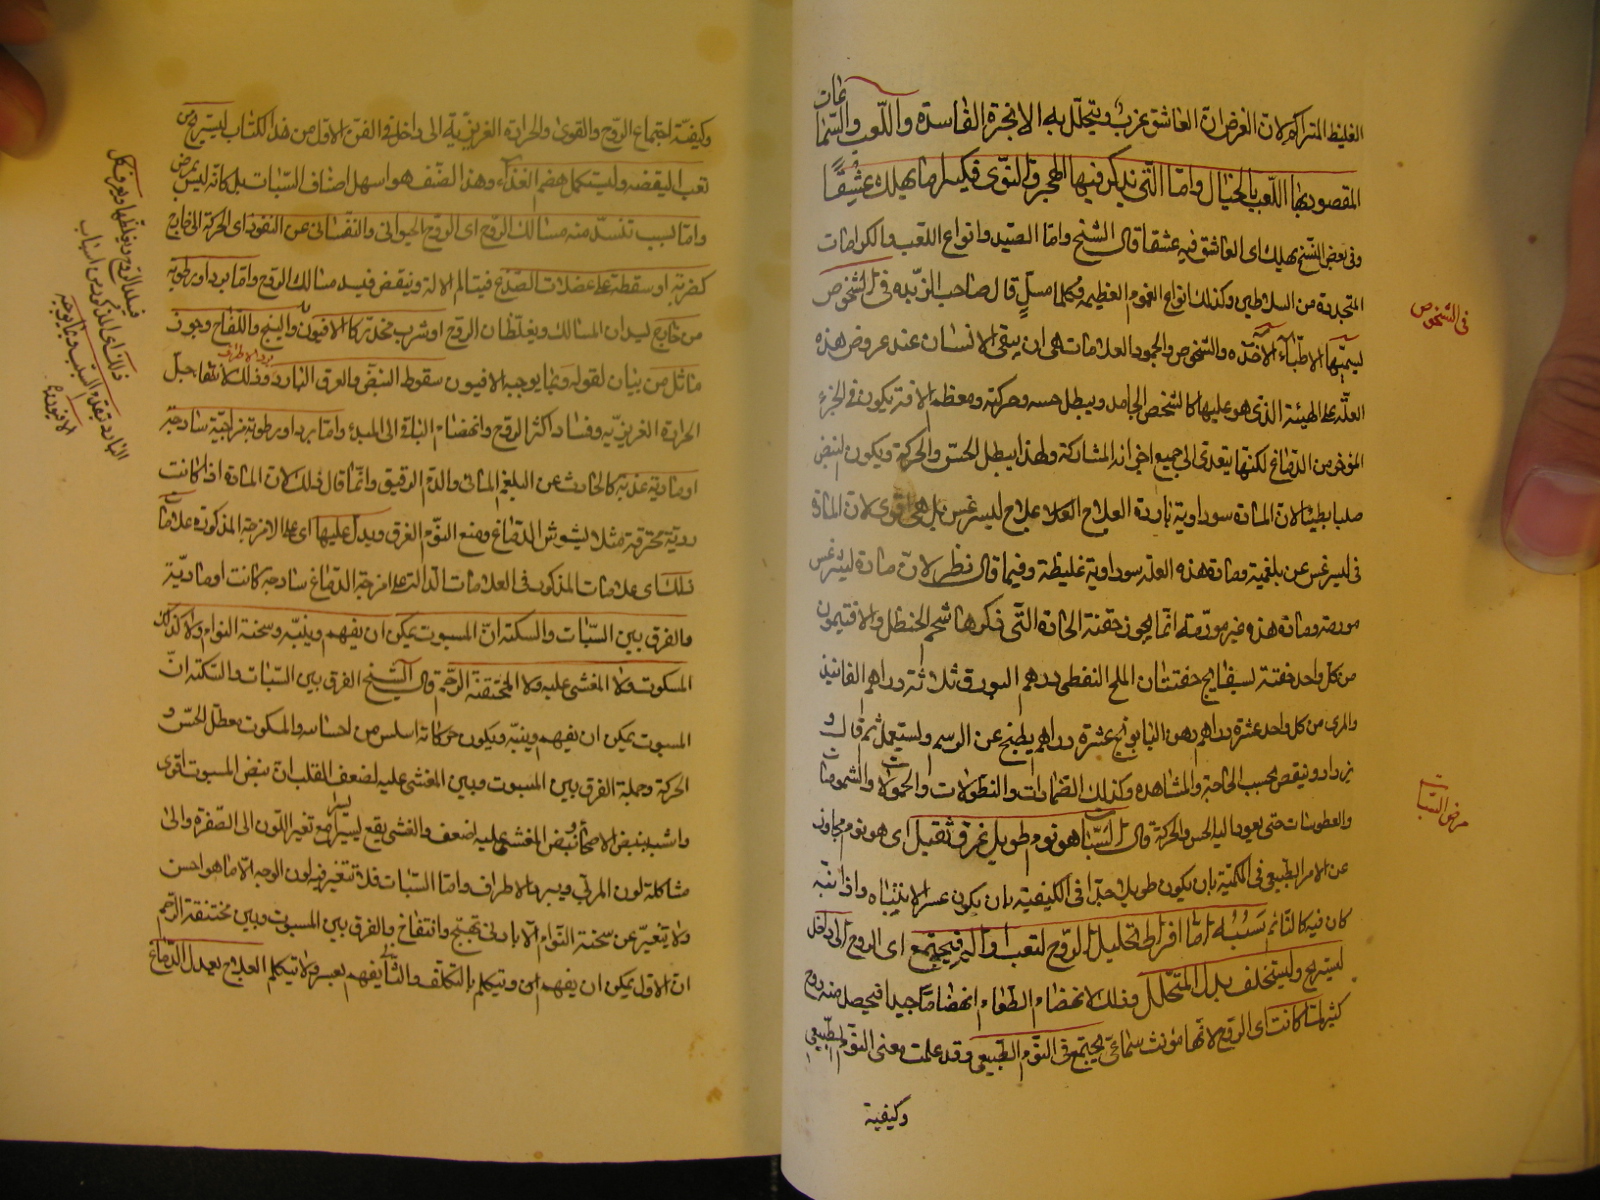 الغليظ المتراكم لان الغرض ان العاشق عزب ويتحلل به الابخرة الفاسدة واللعب والسماعات
المقصود بها اللعب بالخيال واما التي يذكر فيها الهجر والنوى فكثيرا ما يهلك عشقًا
وفي بعض النسخ يهلك اى العاشق فيه عشقا قال الشيخ واما الصيد وانواع اللعب والكرامات
المتجددة من السلاطين وكذلك انواع الغموم العظيمة فكلها مسلٍ قال صاحب الزبده في الشخوص
في الشخوص
يسميها الاطباء الآخذه والشخوص والجمود العلامات هي ان يبقى الانسان عند عروض هذه
العلة على الهيئة الذى هو عليها كالشخص الجامد ويبطل حسه وحركته ومعظم الافة يكون في الجزء
المؤخر من الدماغ لكنها يتعدى الى جميع اجزائه المشاركة ولهذا يبطل الحس والحركة ويكون النبض
صلبا بطيئا لان المادة سوداوية باردة العلاج العلاج علاج ليسرغس بل هي اقوى لان المادة
في ليسرغس عن بلغمية ومادة هذه العلة سوداوية غليظة وفيما قال نظر لان مادة ليسرغس
مورمة ومادة هذه غير مورمة انما يجوز حقنة الحادة التي ذكرها شحم الحنظل والافتيمون
من كل واحد حفنة بسفايج حفنتان الملح النفطي درهم البورق ثلاثة دراهم الفانيذ
والمرى من كل واحد عشرة دراهم دهن البابونج عشرة دراهم يطبخ عن الرسم ويستعمل ثم قال و
يزداد وينقص بحسب الحاجة والمشاهده وكذلك الضمادات والنطولات والحمولات والشمومات
مرض السبات
والعطوسات حتى يعود اليه الحس والحركة قال السبات هو نوم طويل غرق ثقيل اى هو نوم مجاوز
عن الامر الطبيعي في الكمية بان يكون طويلا جدا في الكيفية بان يكون عسر الانتباه واذا نبه
كان فيه كالنائم سببه اما افراط تحليل الروح لتعب او الم فيجتمع اى الروح الى داخل
ليستريح ويستخلف بدل المتحلل وذلك لانهضام الطعام انهضاما جيدا فيحصل منه روح
كثير لما كانت اى الروح لانها مؤنث سماعي يجتمع في النوم الطبيعي وقد علمت معنى النوم الطبيعي
وكيفية
وكيفية اجتماع الروح والقوى والحرارة الغريزية الى داخله في الفن الاول من هذا الكتاب ليستريح من
تعب اليقظه وليتكمل هضم الغذاء وهذا الصنف هو اسهل اصناف السبات بل كانه ليس بمرض
واما لسبب تنسد منه مسالك الروح اى الروح الحيواني والنفساني عن النفوذ اى الحركة الى خارج
كضربة او سقطة على عضلات الصدغ فيتالم الالة وينقبض فيسد مسالك الروح واما برد او رطوبة
من خارج ليسدان المسالك ويغلظان الروح او شرب مخدر كالافيون والبنج واللفاح وجوز
ماثل من بيان لقوله وبما يوجبه الافيون سقوط النبض والعرق البارد وذلك لانتفاء جل
برد الاطراف
الحرارة الغريزية وفساد اكثر الروح وانهضام الباقي الى المبدء واما برد او رطوبة مزاجية ساذجة
او مادية عذبة كالحادث عن البلغم المائي والدم الرقيق وانما قال ذلك لان المادة اذا كانت
ردية محترقة مثلا يشوش الدماغ ومنع النوم الغرق ويدل عليها اى على الامزجة المذكورة علامات
ذلك اى علامات المذكور في العلامات الدالة على امزجة الدماغ ساذجة كانت او مادية
والفرق بين السبات والسكتة ان المسبوت يمكن ان يفهم وينبه وسحنة النوام ولا كذلك
المسكوت ولا المغشى عليه ولا المختنقة الرحم قال الشيخ الفرق بين السبات والسكتة ان
المسبوت يمكن ان يفهم وينبه ويكون حركاته اسلس من احساسه والمسكوت معطل الحس و
الحركة وجملة الفرق بين المسبوت وبين المغشى عليه لضعف القلب ان نبض المسبوت اقوى
واشبه بنبض الاصحاء ونبض المغشى عليه اضعف والغشى يقع يسيرا يسيرا مع تغير اللون الى الصفرة والى
مشاكلة لون الموتى ويبرد الاطراف واما السبات فلا تتغير فيه لون الوجه الا ما هو احسن
ولا يتغير عن سحنة النوام الا بادنى تهبج وانتفاخ والفرق بين المسبوت وبين مختنقة الرحم
ان الاول يمكن ان يفهم امن ويتكلم بالتكلف والثاني يفهم بعسر ولا تتكلم العلاج تعديل الدماغ